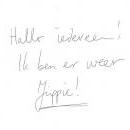 Hallo iedereen!
Ik ben er weer
Jippie!